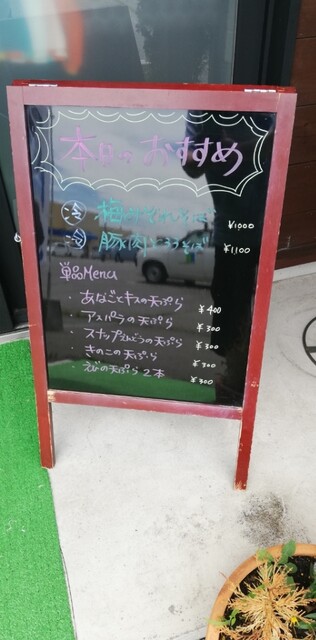 本日のおすすめ
冷 梅みぞれそば ¥1000
冷 豚肉じょうそば ¥1,100
単品Menu
・あなごとキスの天ぷら ¥400
・アスパラの天ぷら ¥300
・スナップえんどうの天ぷら ¥300
・きのこの天ぷら ¥300
・えびの天ぷら 2本 ¥300